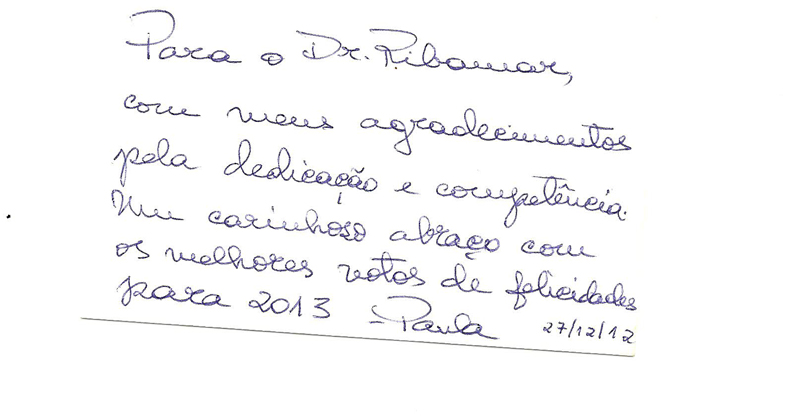 Para o Dr. Ribamar,
com meus agradecimentos
pela dedicação e competência.
Um carinhoso abraço com
os melhores votos de felicidades
para 2013 - Paula 27/12/12